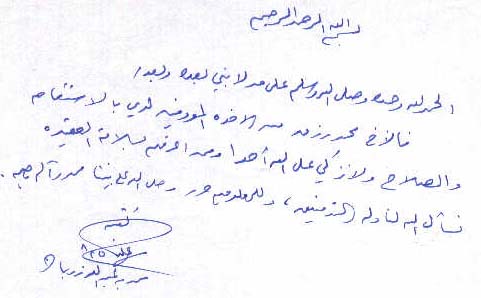 بسم الله الرحمن الرحيم
الحمد لله وحده وصلى الله وسلم على من لا نبي بعده وبعد/
فالأخ محمد من الاخوة المعروفين لدي بالاستقامة
والصلاح ولا نزكي على الله أحدا وممن اعرفهم بسلامة العقيدة
نسأل الله لنا وله التوفيق، وللمعلومية حرر وصلى الله على نبينا محمد وآله وصحبه.
كتبه